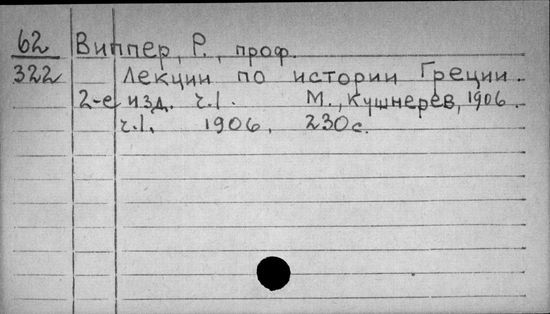 62 Виппер, Р., проф.
322 Лекции по истории Греции.
2-е изд. ч.I. М., Кушнерев, 1906.
ч.I. 1906. 230с.